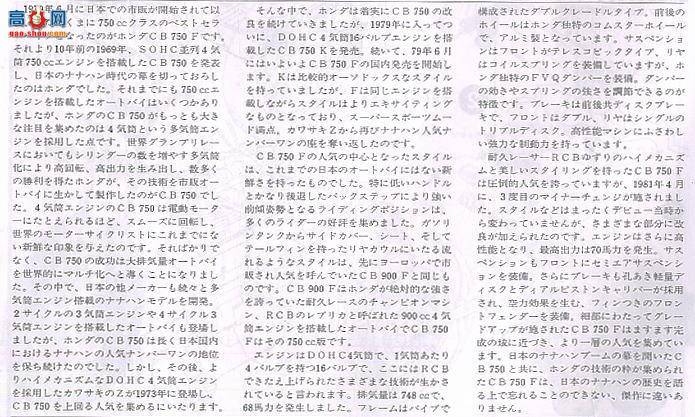 1979年6月に日本での市販が開始されて以
来、またたくまに750ccクラスのベストセラ
ーとなったのがホンダCB750Fです。
それより10年前の1969年、SOHC並列4気
筒750ccエンジンを搭載したCB750を発表
し、日本のナナハン時代の幕を切っておろし
たのはホンダでした。それまでにも750ccエ
ンジンを搭載したオートバイはいくつかあり
ましたが、ホンダのCB750がもっとも大き
な注目を集めたのは4気筒という多気筒エン
ジンを採用した点です。世界グランプリレー
スにおいてもシリンダーの数を増やす多気筒
化により高回転、高出力を生み出し、数多く
の勝利を得たホンダが、その技術を市販オー
トバイに生かして製作したのがCB750でし
た。4気筒エンジンのCB750は電動モータ
ーにたとえられるほど、スムーズに回転し、
世界のモーターサイクリストにこれまでにな
い新鮮な印象を与えたのです。そればかりで
なく、CB750の成功は大排気量オートバイ
を世界的にマルチ化へと導くことになりまし
た。その中で、日本の他メーカーも続々と多
気筒エンジン搭載のナナハンモデルを開発。
2サイクルの3気筒エンジンや4サイクル3
気筒エンジンを搭載したオートバイも登場し
ましたが、ホンダのCB750は長く日本国内
におけるナナハンの人気ナンバーワンの地位
を保ち続けたのでした。しかし、その後、よ
りハイメカニズムなDOHC4気筒エンジン
を採用したカワサキのZが1973年に登場し、
CB750を上回る人気を集めるにいたります。
そんな中で、ホンダは着実にCB750の改
良を続けていきましたが、1979年に入ってつ
いに、DOHC4気筒16バルブエンジンを搭
載したCB750Kを発売。続いて、79年6月
にはいよいよCB750Fの国内発売を開始し
ます。Kは比較的オーソドックスなスタイル
を持っていましたが、Fは同じエンジンを搭
載しながらスタイルはよりエキサイティング
なものとなっており、スーパースポーツムー
ド満点。カワサキZから再びナナハン人気ナ
ンバーワンの座を奪い返したのです。
CB750Fの人気の中心となったスタイル
は、これまでの日本のオートバイにはない新
鮮さを持ったものでした。特に低いハンドル
とかなり後退したバックステップにより強い
前傾姿勢となるライディングポジションは、
多くのライダーの好評を集めました。ガソリ
ンタンクからサイドカバー、シート、そして
テールフィンを持ったリヤカウルにいたる流
れるようなスタイルは、先にヨーロッパで市
販され人気を呼んでいたCB900Fと同じも
のです。CB900Fはホンダが絶対的な強さ
を誇っていた耐久レースのチャンピオンマシ
ン、RCBのレプリカと呼ばれた900cc4気
筒エンジンを搭載したオートバイでCB750
Fはその750cc版です。
エンジンはDOHC4気筒で、1気筒あたり
4バルブを持つ16バルブで、ここにはRCB
できたえ上げられたさまざまな技術が生かさ
れていると言われます。排気量は748ccで、
68馬力を発生しました。フレームはパイプで
構成されたダブルクレードルタイプ。前後の
ホイールはホンダ独特のコムスターホイール
で、アルミ製となっています。サスペンショ
ンはフロントがテレスコピックタイプ、リヤ
はコイルスプリングを装備していますが、ホ
ンダ独特のFVQダンパーを装備。ダンパー
の効きやスプリングの強さを調節できるのが
特徴です。ブレーキは前後共ディスクブレー
キで、フロントはダブル、リヤはシングルの
トリプルディスク。高性能マシンにふさわし
い強力な制動力を持っています。
耐久レーサーRCBゆずりのハイメカニズ
ムと美しいスタイリングを持ったCB750F
は圧倒的人気を誇っていますが、1981年4月
に、3度目のマイナーチェンジが施されまし
た。スタイルなどはまったくデビュー当時か
ら変わっていませんが、さまざまな部分に改
良が加えられたのです。エンジンはさらに高
性能となり、最高出力は70馬力を発生。サス
ペンションもフロントにセミエアサスペンシ
ョンを装備。さらにブレーキも孔あき軽量デ
ィスクとディアルピストンキャリパーが採用
され、空力効果を生む、フィンつきのフロン
トフェンダーを装備。細部にわたってグレー
ドアップが施されたCB750Fはますます完
成の域に近づき、より一層の人気を集めてい
ます。日本のナナハンブームの幕を開いたC
Bと共に、ホンダの技術の粋が集められ
たCB750Fは、日本のナナハンの歴史を語
る上で忘れることのできない、傑作に違いあ
りません。